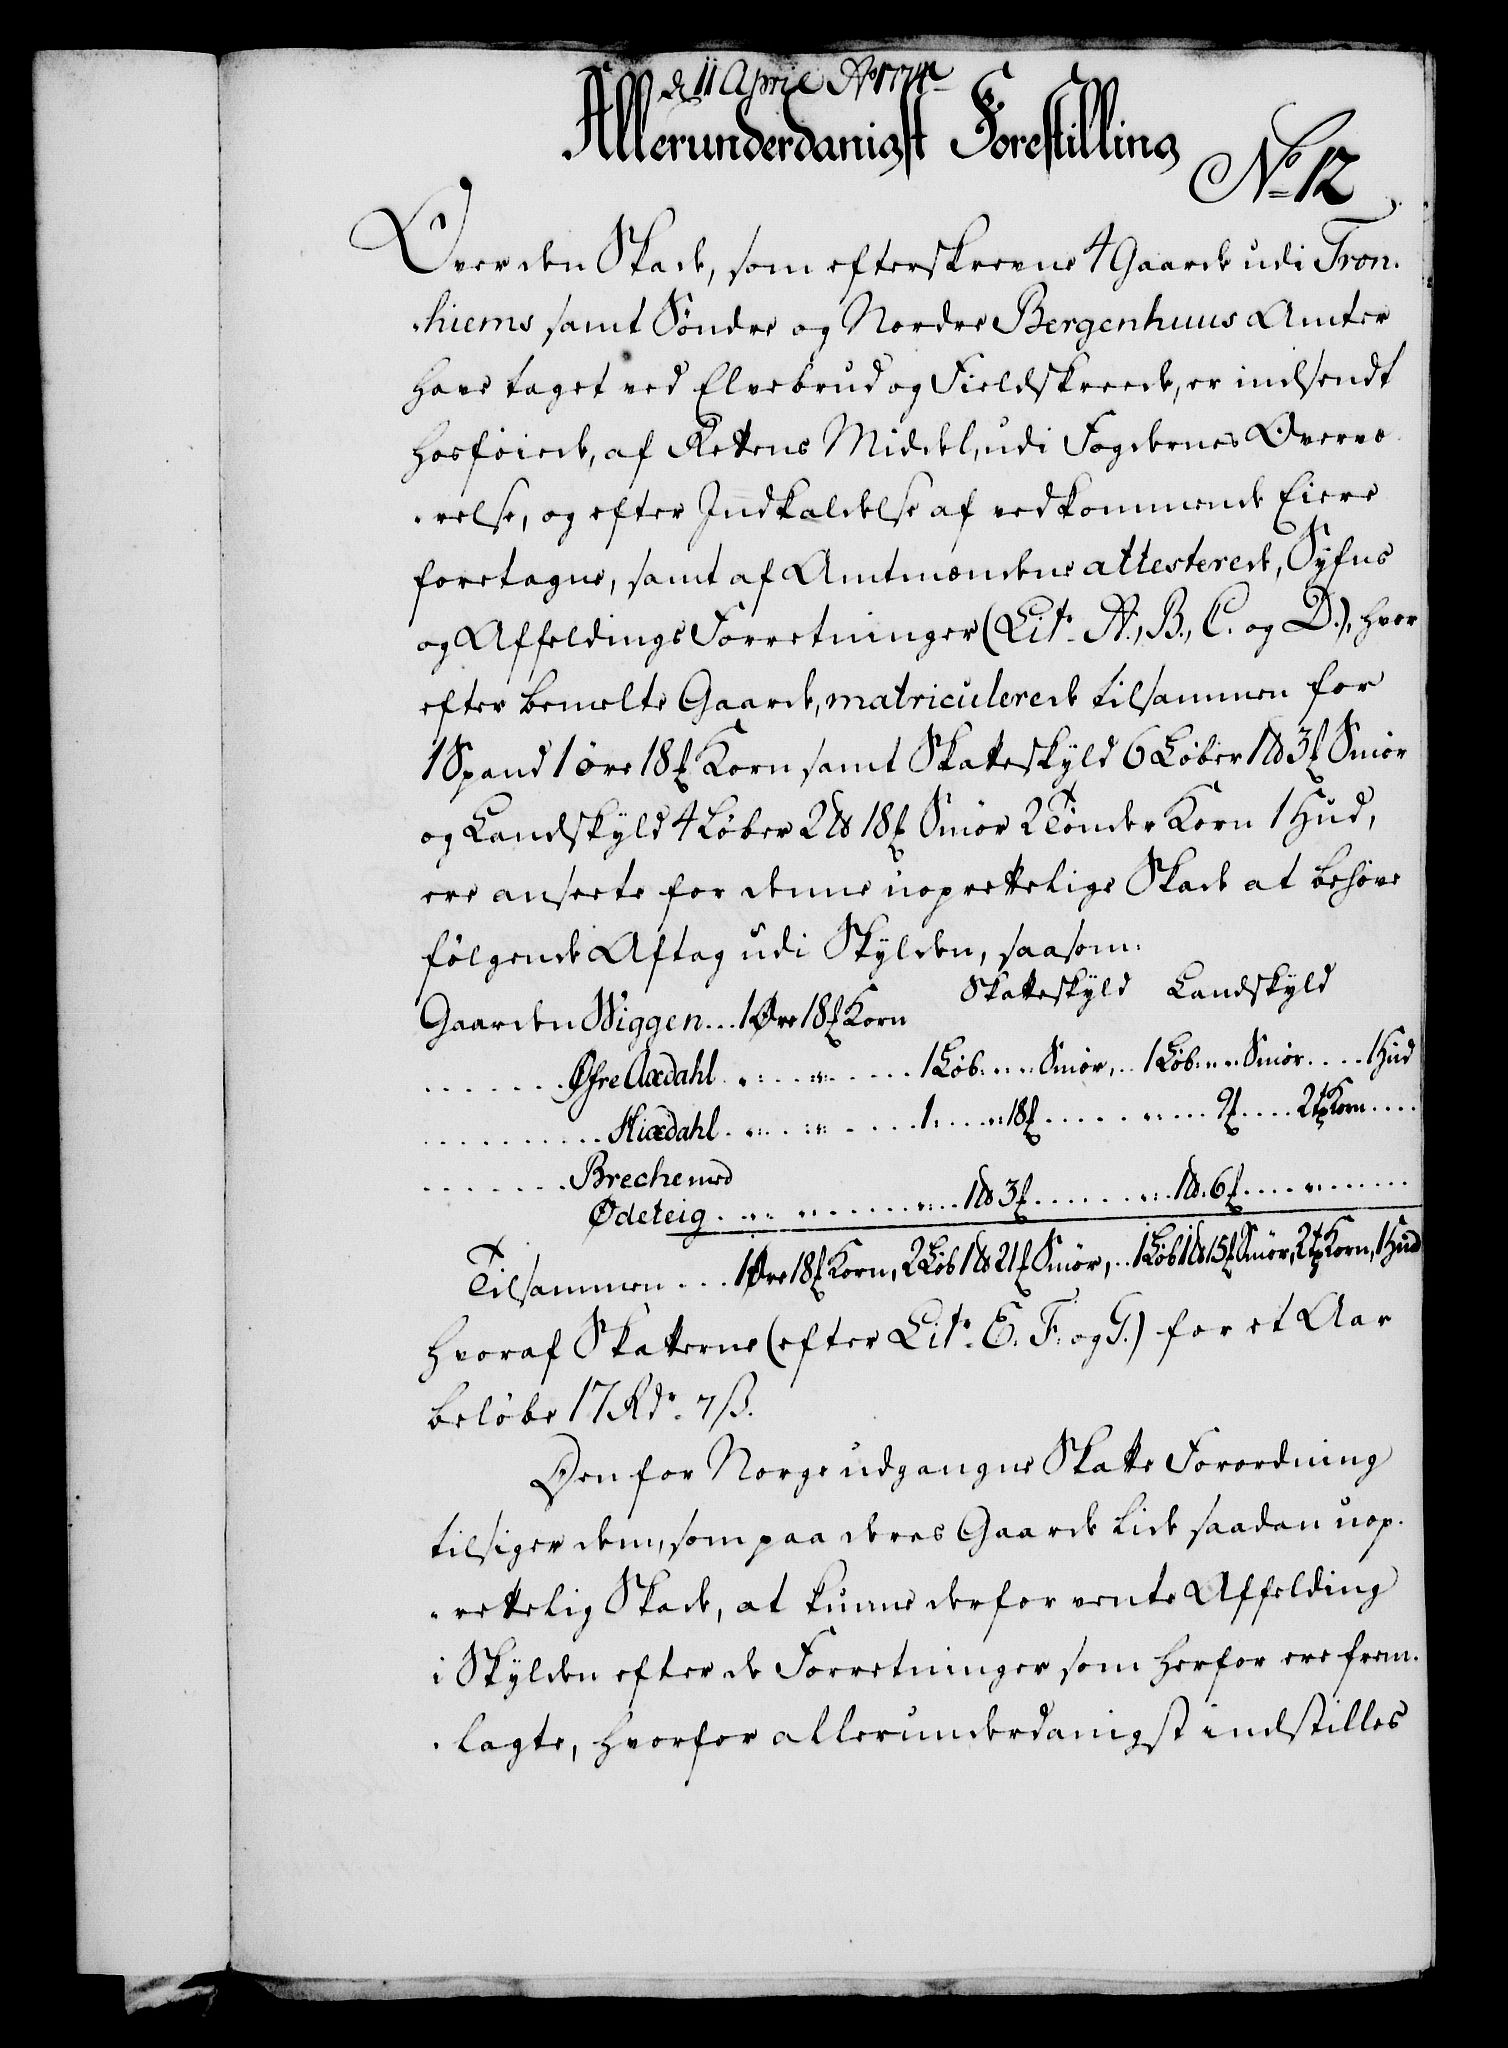 d 11 April Aº 1774
Allerunderdanigst Forestilling
Nº 12
Over den Skade, som efterskrevne 4 Gaarde udi Tron-
-hiems samt Søndre og Nordre Bergenhuus Amter
have taget ved Elvebrud og Fieldskreede, er indsendt
hosføiede, af Rettens Middel, udi Fogdernes Overvæ-
-relse, og efter Indkaldelse af vedkommende Eiere
foretagne, samt af Amtmændene attesterede, Syfns
og Affeldings Forretninger (Litr. A., B., C. og D.), hvor
efter bemelte Gaarde, matriculerede tilsammen for
1 Spand 1 öre 18 ℔ Korn samt Skatteskyld 6 Løber 1 ₰ 3 ℔ Smør
og Landskyld 4 Løber 2 ₰ 18 ℔ Smör 2 Tönder Korn 1 Hud,
ere anseete for denne uoprettelige Skade at behöve
fölgende Aftag udi Skylden, saasom:
Skatteskyld Landskyld
Gaarden Wiggen ... 1 Øre 18 ℔ Korn
....... Øfre Aaedahl ......... 1 Löb. ... Smör, .. 1 Löb. ... Smör .... 1 Hud
.......... Hiædahl ......... 1 ... 18 ℔ ......... 9 ℔ .... 2 tr Korn ....
....... Breche med
Ødeteig ............ 1 ₰ 3 ℔ ......... 1 ₰ 6 ℔ .........
Tilsammen ... 1 Øre 18 ℔ Korn, 2 Løb 1 ₰ 21 ℔ Smör, .. 1 Løb 1 ₰ 15 ℔ Smör, 2 tr Korn, 1 Hud
hvoraf Skatterne (efter Litr. E. F. og G.) for et Aar
beløbe 17 Rdr. 7 ß.
Den for Norge udgangne Skatte Forordning
tilsiger dem, som paa deres Gaarde lide saadan uop-
-rettelig Skade, at kunne derfor vente Affelding
i Skylden efter de Forretninger som herfor ere frem-
-lagte, hvorfor allerunderdanigst indstilles